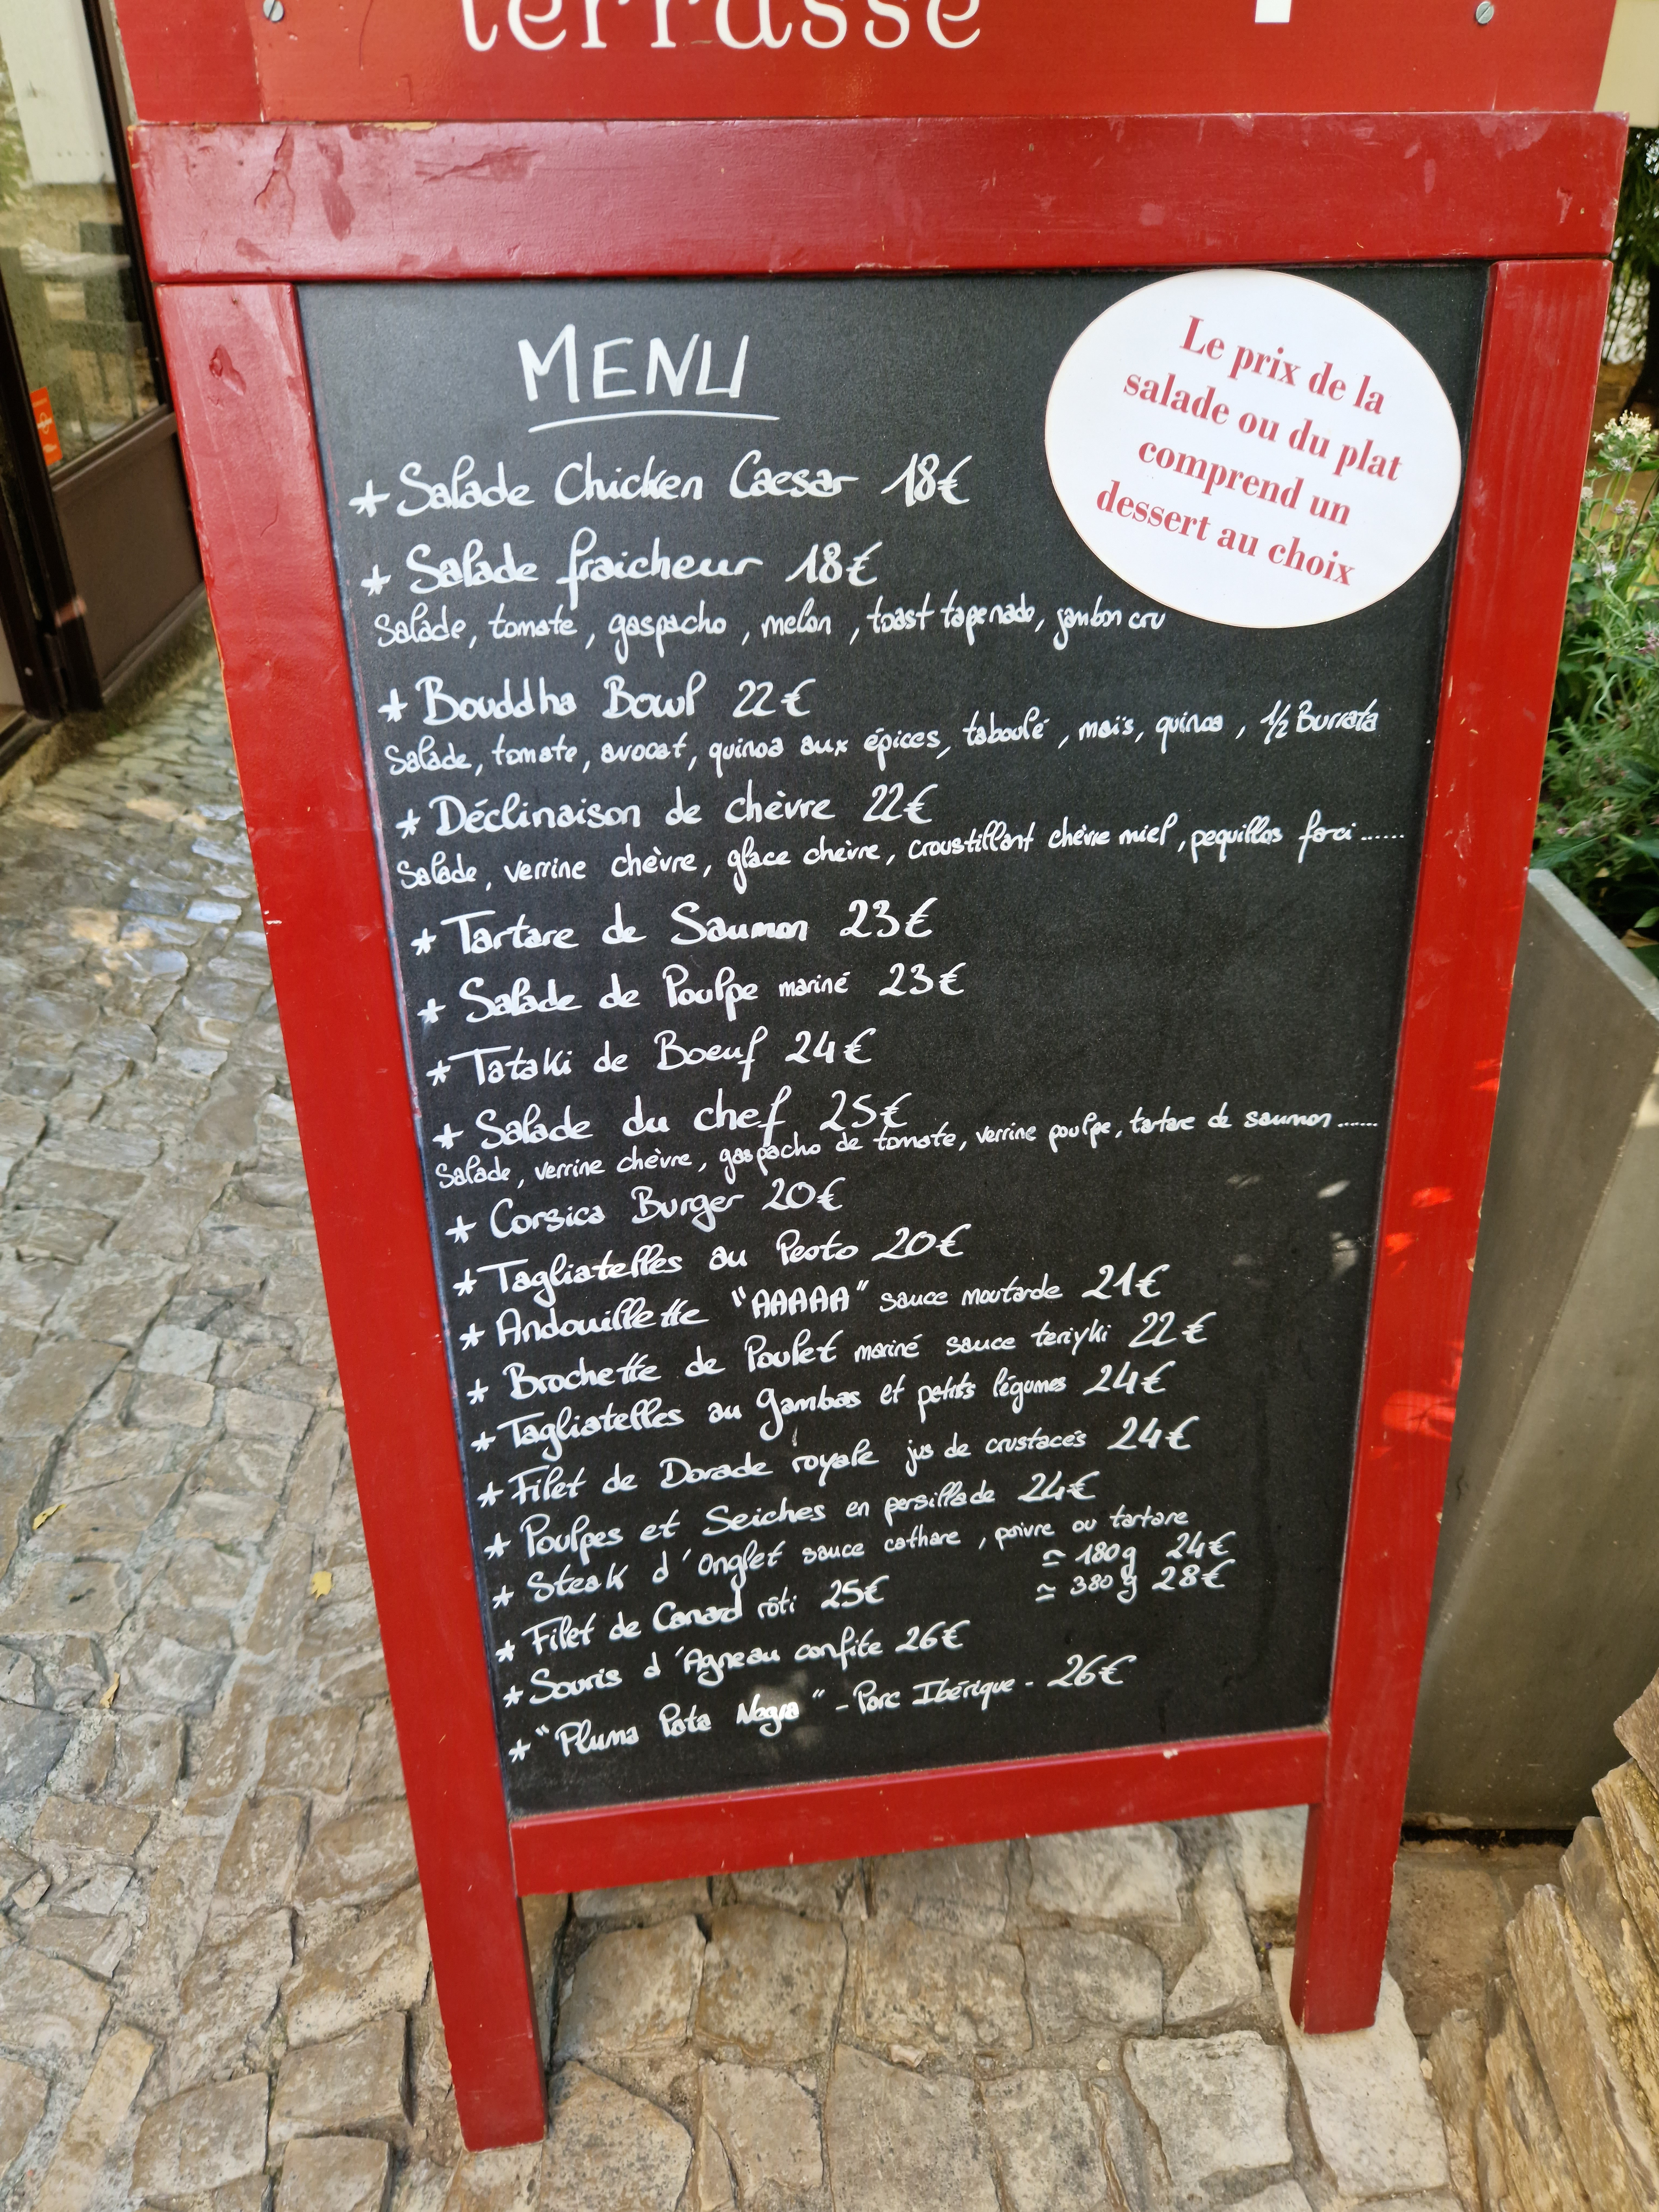 terrasse
MENU
Le prix de la
salade ou du plat
comprend un
dessert au choix
* Salade Chicken Caesar 18€
* Salade fraicheur 18€
Salade, tomate, gaspacho, melon, toast tapenade, jambon cru
* Bouddha Bowl 22€
Salade, tomate, avocat, quinoa aux épices, taboulé, maïs, quinoa, 1/2 Burrata
* Déclinaison de chèvre 22€
Salade, verrine chèvre, glace chèvre, croustillant chèvre miel, pequillos farci......
* Tartare de Saumon 23€
* Salade de Poulpe mariné 23€
* Tataki de Boeuf 24€
* Salade du chef 25€
Salade, verrine chèvre, gaspacho de tomate, verrine poulpe, tartare de saumon......
* Corsica Burger 20€
* Tagliatelles au Pesto 20€
* Andouillette "AAAAA" sauce moutarde 21€
* Brochette de Poulet mariné sauce teriyki 22€
* Tagliatelles au gambas et petits légumes 24€
* Filet de Dorade royale jus de crustacés 24€
* Poulpes et Seiches en persillade 24€
* Steak d'Onglet sauce cathare, poivre ou tartare
≃ 180g 24€
≃ 380g 28€
* Filet de Canard rôti 25€
* Souris d'Agneau confite 26€
* "Pluma Pata Negra" - Porc Ibérique - 26€